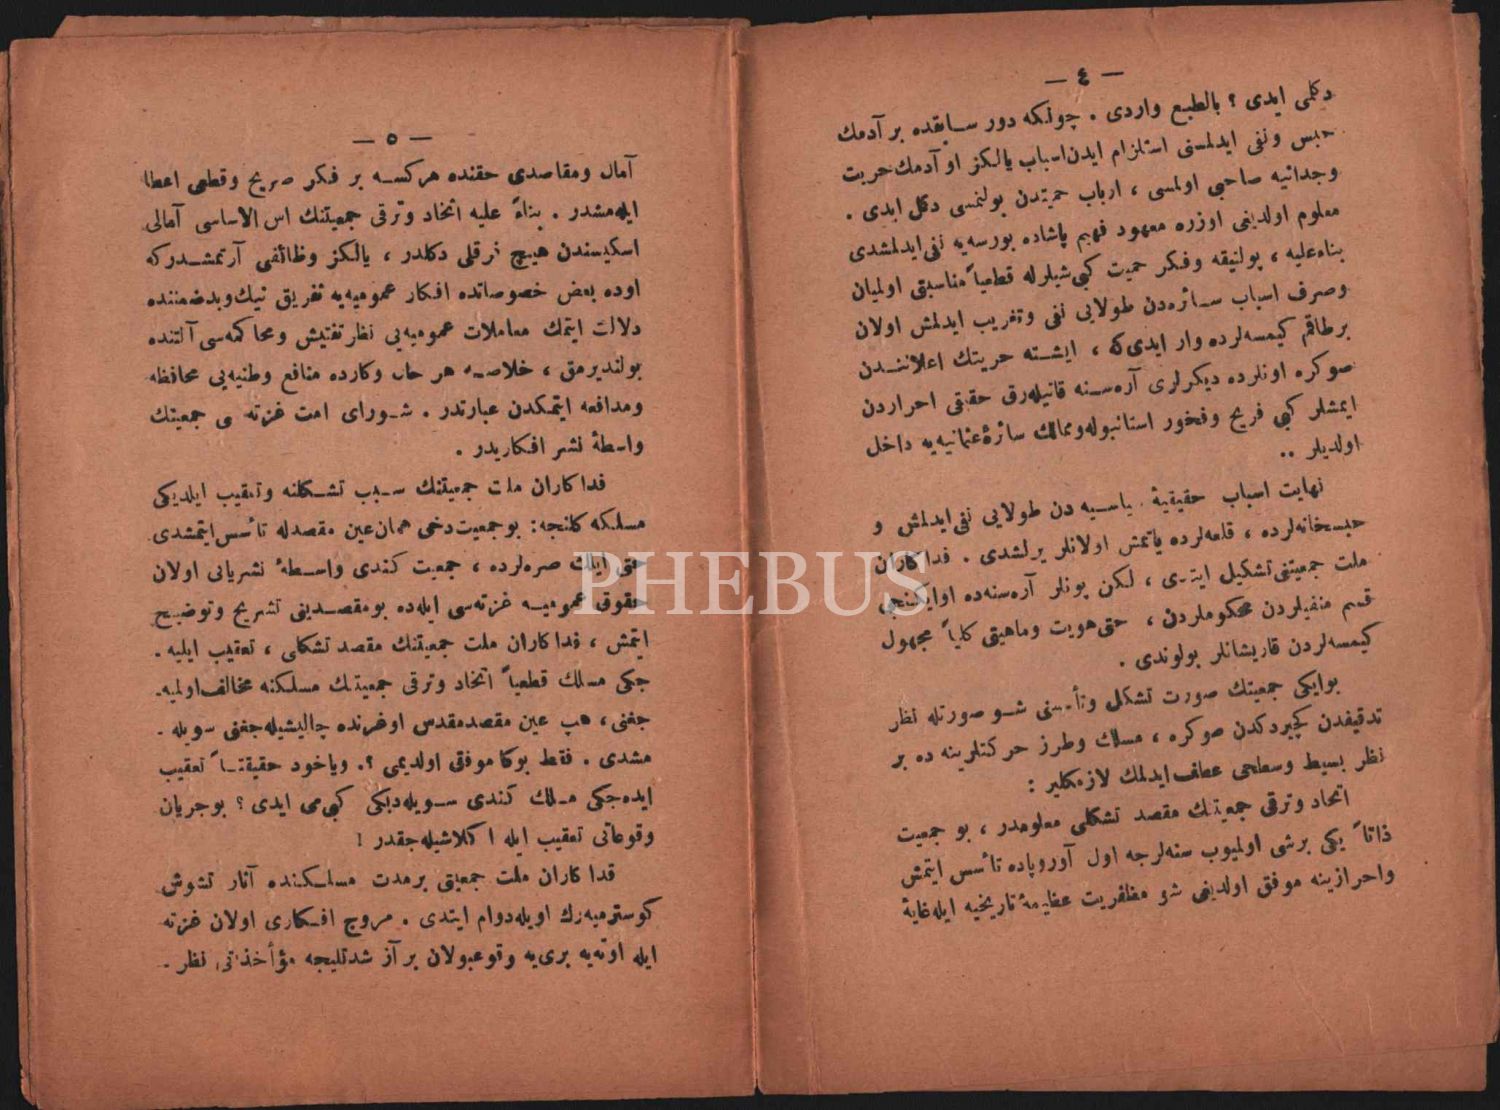 — ٤ —
دكلمی ایدی ؟ بالطبع واردی . چونكه دور سابقده بر آدمك
حبس ونفی ایدلمسنی استلزام ایدن اسباب یالكز او آدمك حریت
وجدانیه صاحبی اولمسی ، ارباب حمیتدن بولنمسی دكل ایدی .
معلوم اولدیغی اوزره معهود فهیم پاشاده بورسه‌یه نفی ایدلمشدی
بناءعلیه ، پولتیقه وفكر حمیت كبی شیلرله قطعیاً مناسبتی اولمیان
وصرف اسباب سائره‌دن طولایی نفی وتغریب ایدلمش اولان
برطاقم كیمسه‌لرده وار ایدی‌كه ، ایشته حریتك اعلاننـدن
صوكره اونلرده دیكرلری آره‌سنه قاتیله‌رق حقیقی احراردن
ایمشلر كبی فریح وفخور استانبوله‌وممالك سائرۀ عثمانیه‌یه داخل
اولدیلر ..
نهایت اسباب حقیقیۀ سیاسیه دن طولایی نفی ایدلمش و
حبسخانه‌لرده ، قلعه‌لرده یاتمش اولانلر برلشدی . فداكاران
ملت جمعیتنی تشكیل ایتدی ، لكن بونلر آره‌سنه‌ده اوایكنجی
قسم منفیلردن محكوملردن ، حتی هویت وماهیتی كلیاً مجهول
كیمسه‌لردن قاریشانلر بولوندی .
بوایكی جمعیتك صورت تشكل وتأسسنی شو صورتله نظر
تدقیقدن كچیردكدن صوكره ، مسلك وطرز حركتلرینه ده بر
نظر بسیط وسطحی عطف ایدلمك لازمكلیر :
اتحاد وترقی جمعیتنك مقصد تشكلی معلومدر ، بو جمعیت
ذاتاً یكی برشی اولمیوب سنه‌لرجه اول آوروپاده تأسس ایتمش
واحرازینه موفق اولدیغی شو مظفریت عظیمۀ تاریخیه ایله غایۀ
— ٥ —
آمال ومقاصدی حقنده هركسـه بر فكر صریح وقطعی اعطا
ایله‌مشدر . بناءً علیه اتحاد وترقی جمعیتنك اس الاساسی آمالی
اسكیسندن هیچ فرقلی دكلدر ، یالكز وظائفی آرتمشـدركه
اوده بعض خصوصاتده افكار عمومیه‌یه تفریق نیك‌وبدضمننده
دلالت ایتمك معاملات عمومیه‌یی نظر تفتیش ومحاكمه‌سی آلتنده
بولندیرمق ، خلاصـه هر حال وكارده منافع وطنیه‌یی محافظه
ومدافعه ایتمكدن عبارتدر . شـورای امت غزته سی جمعیتك
واسطۀ نشر افكاریدر .
فداكاران ملت جمعیتنك سـبب تشـكلنه وتعقیب ایلدیكی
مسلكه كلنجه : بوجمعیت دخی همان عین مقصدله تأسس ایتمشدی
حتی ایلك صره‌لرده ، جمعیت كندی واسـطۀ نشریاتی اولان
حقوق عمومیـه غزته‌سی ایله‌ده بومقصـدینی تشریح وتوضیـح
ایتمش ، فداكاران ملت جمعیتنك مقصد تشكلی ، تعقیب ایلیه‌.
جكی مسلك قطعیاً اتحاد وترقی جمعیتنك مسلكنه مخالف اولمیه‌ـ
جغنی ، هپ عین مقصدمقدس اوغرنده چالیشیله‌جغنی سویله‌ .
مشدی . فقط بوكا موفق اولدیمی ؟. ویاخود حقیقتـاً تعقیب
ایده‌جكی مسلك كندی سـویله‌دیكی كبی‌می ایدی ؟ بوجریان
وقوعاتی تعقیب ایله اكلاشیله‌جقدر !
فداكاران ملت جمعیتی برمدت مسلـكـنده آثار تشوش
كوسترمیه‌رك اویله‌دوام ایتدی . مروج افـكاری اولان غزته
ایله اوته‌یه بری‌یه وقوعبولان برآز شدتلیجه مؤاخذاتی نظر .
PHEBUS